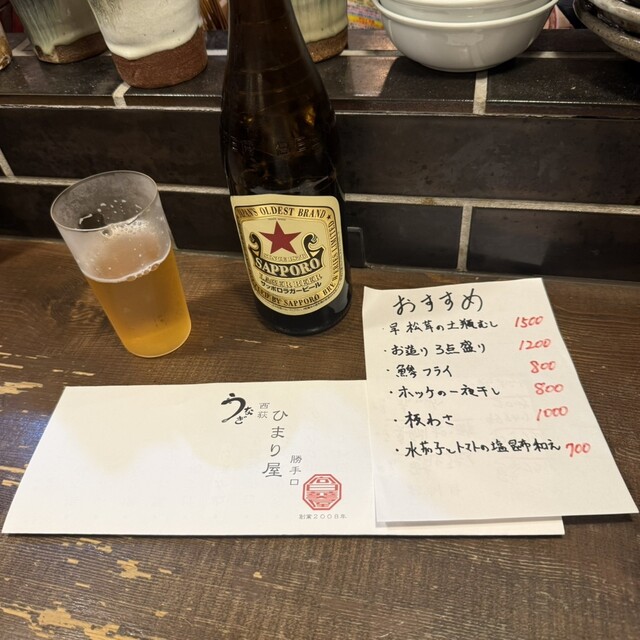 JAPAN'S OLDEST BRAND
SINCE 1876
SAPPORO
LAGER BEER
サッポロラガービール
おすすめ
・早松茸の土瓶むし 1500
・お造り3点盛り 1200
・鰺フライ 800
・ホッケの一夜干し 800
・板わさ 1000
・水茄子とトマトの塩昆布和え 700
うなぎ
西荻
ひまり屋
勝手口
創業2008年